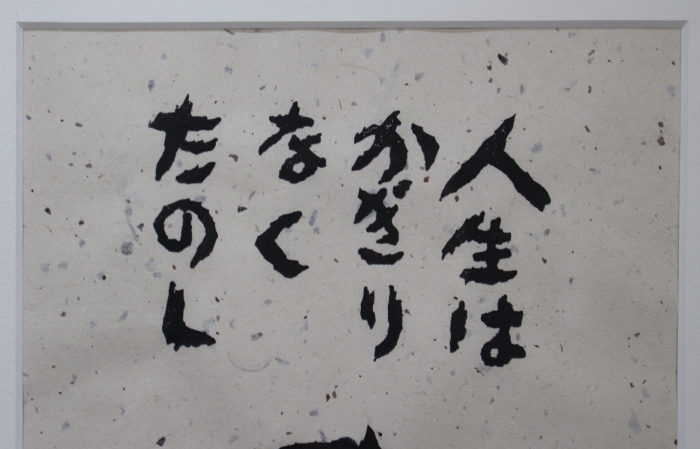 人生は
かぎり
なく
たのし